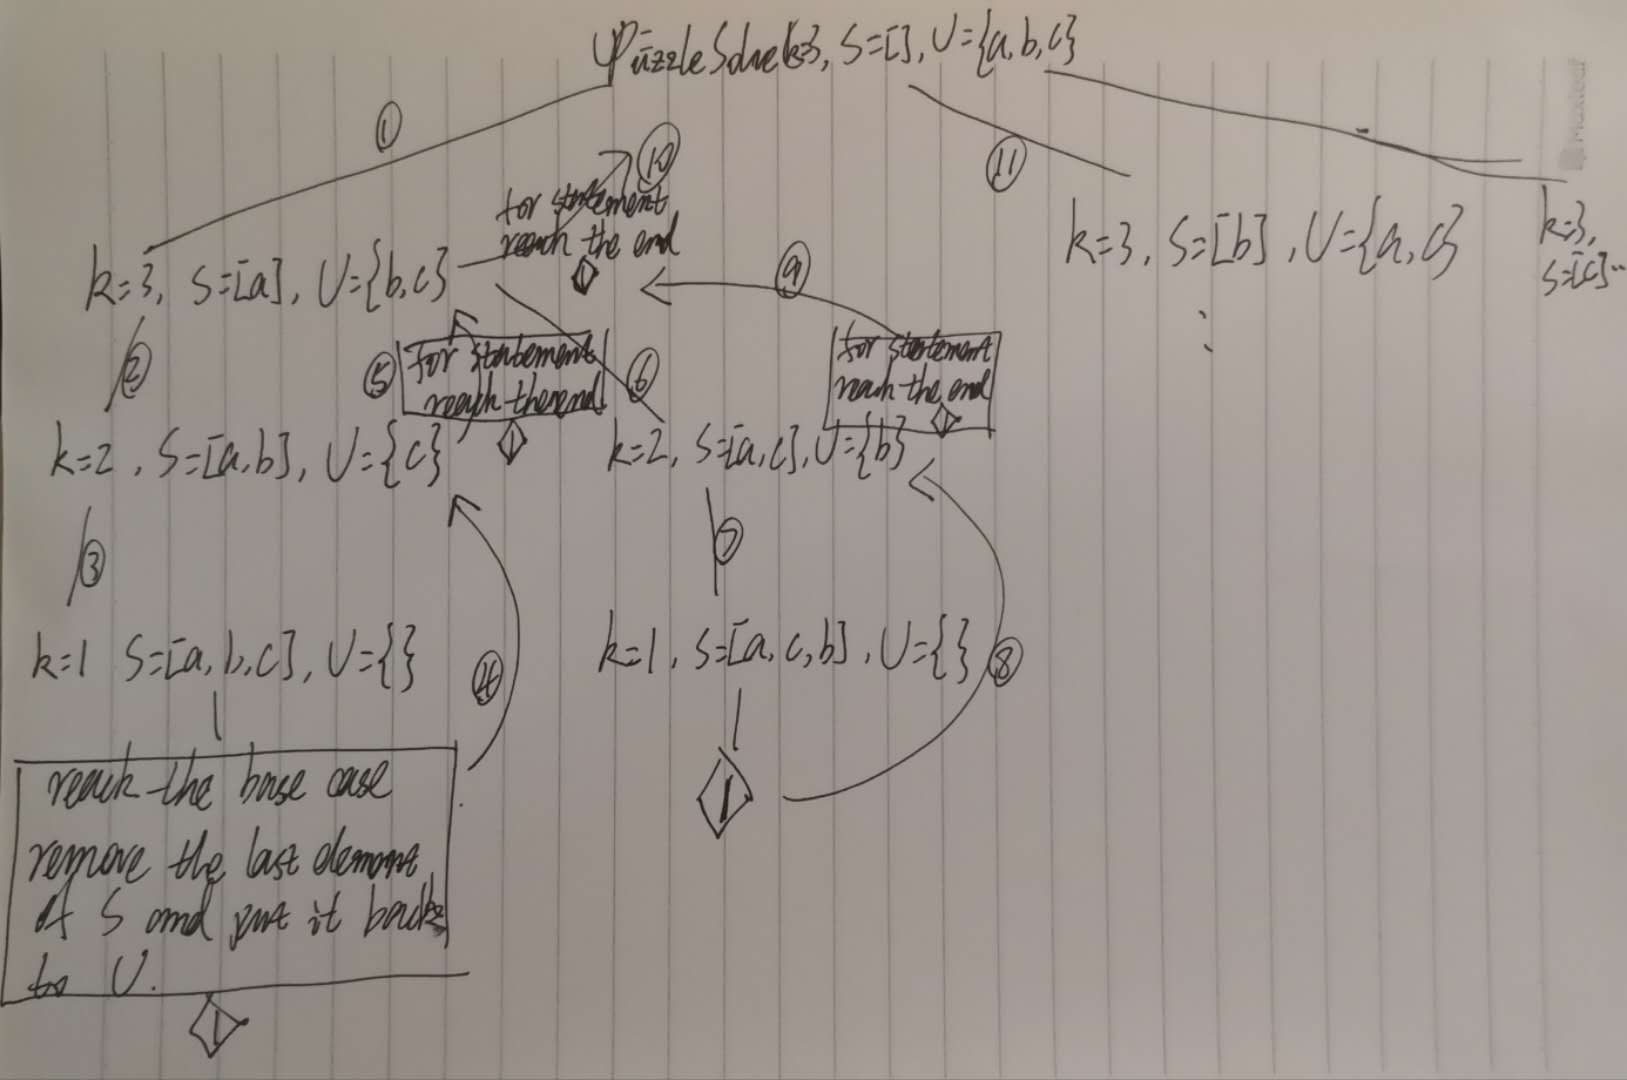 PuzzleSolve k=3, S=[], U={a,b,c}
①
⑩
⑪
for statement
reach the end
k=3, S=[a], U={b,c}
①
⑨
k=3, S=[b], U={a,c}
k=3,
S=[c]..
②
⑤
for statement
reach the end
①
⑥
for statement
reach the end
①
⋮
k=2, S=[a,b], U={c}
k=2, S=[a,c], U={b}
③
⑦
k=1 S=[a,b,c], U={}
④
k=1, S=[a,c,b], U={}
⑧
reach the base case
remove the last element
of S and put it back
to U.
1
1